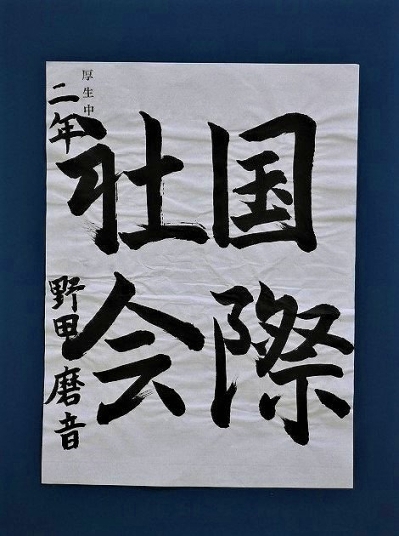 国際
社会
厚生中
二年 野田磨音